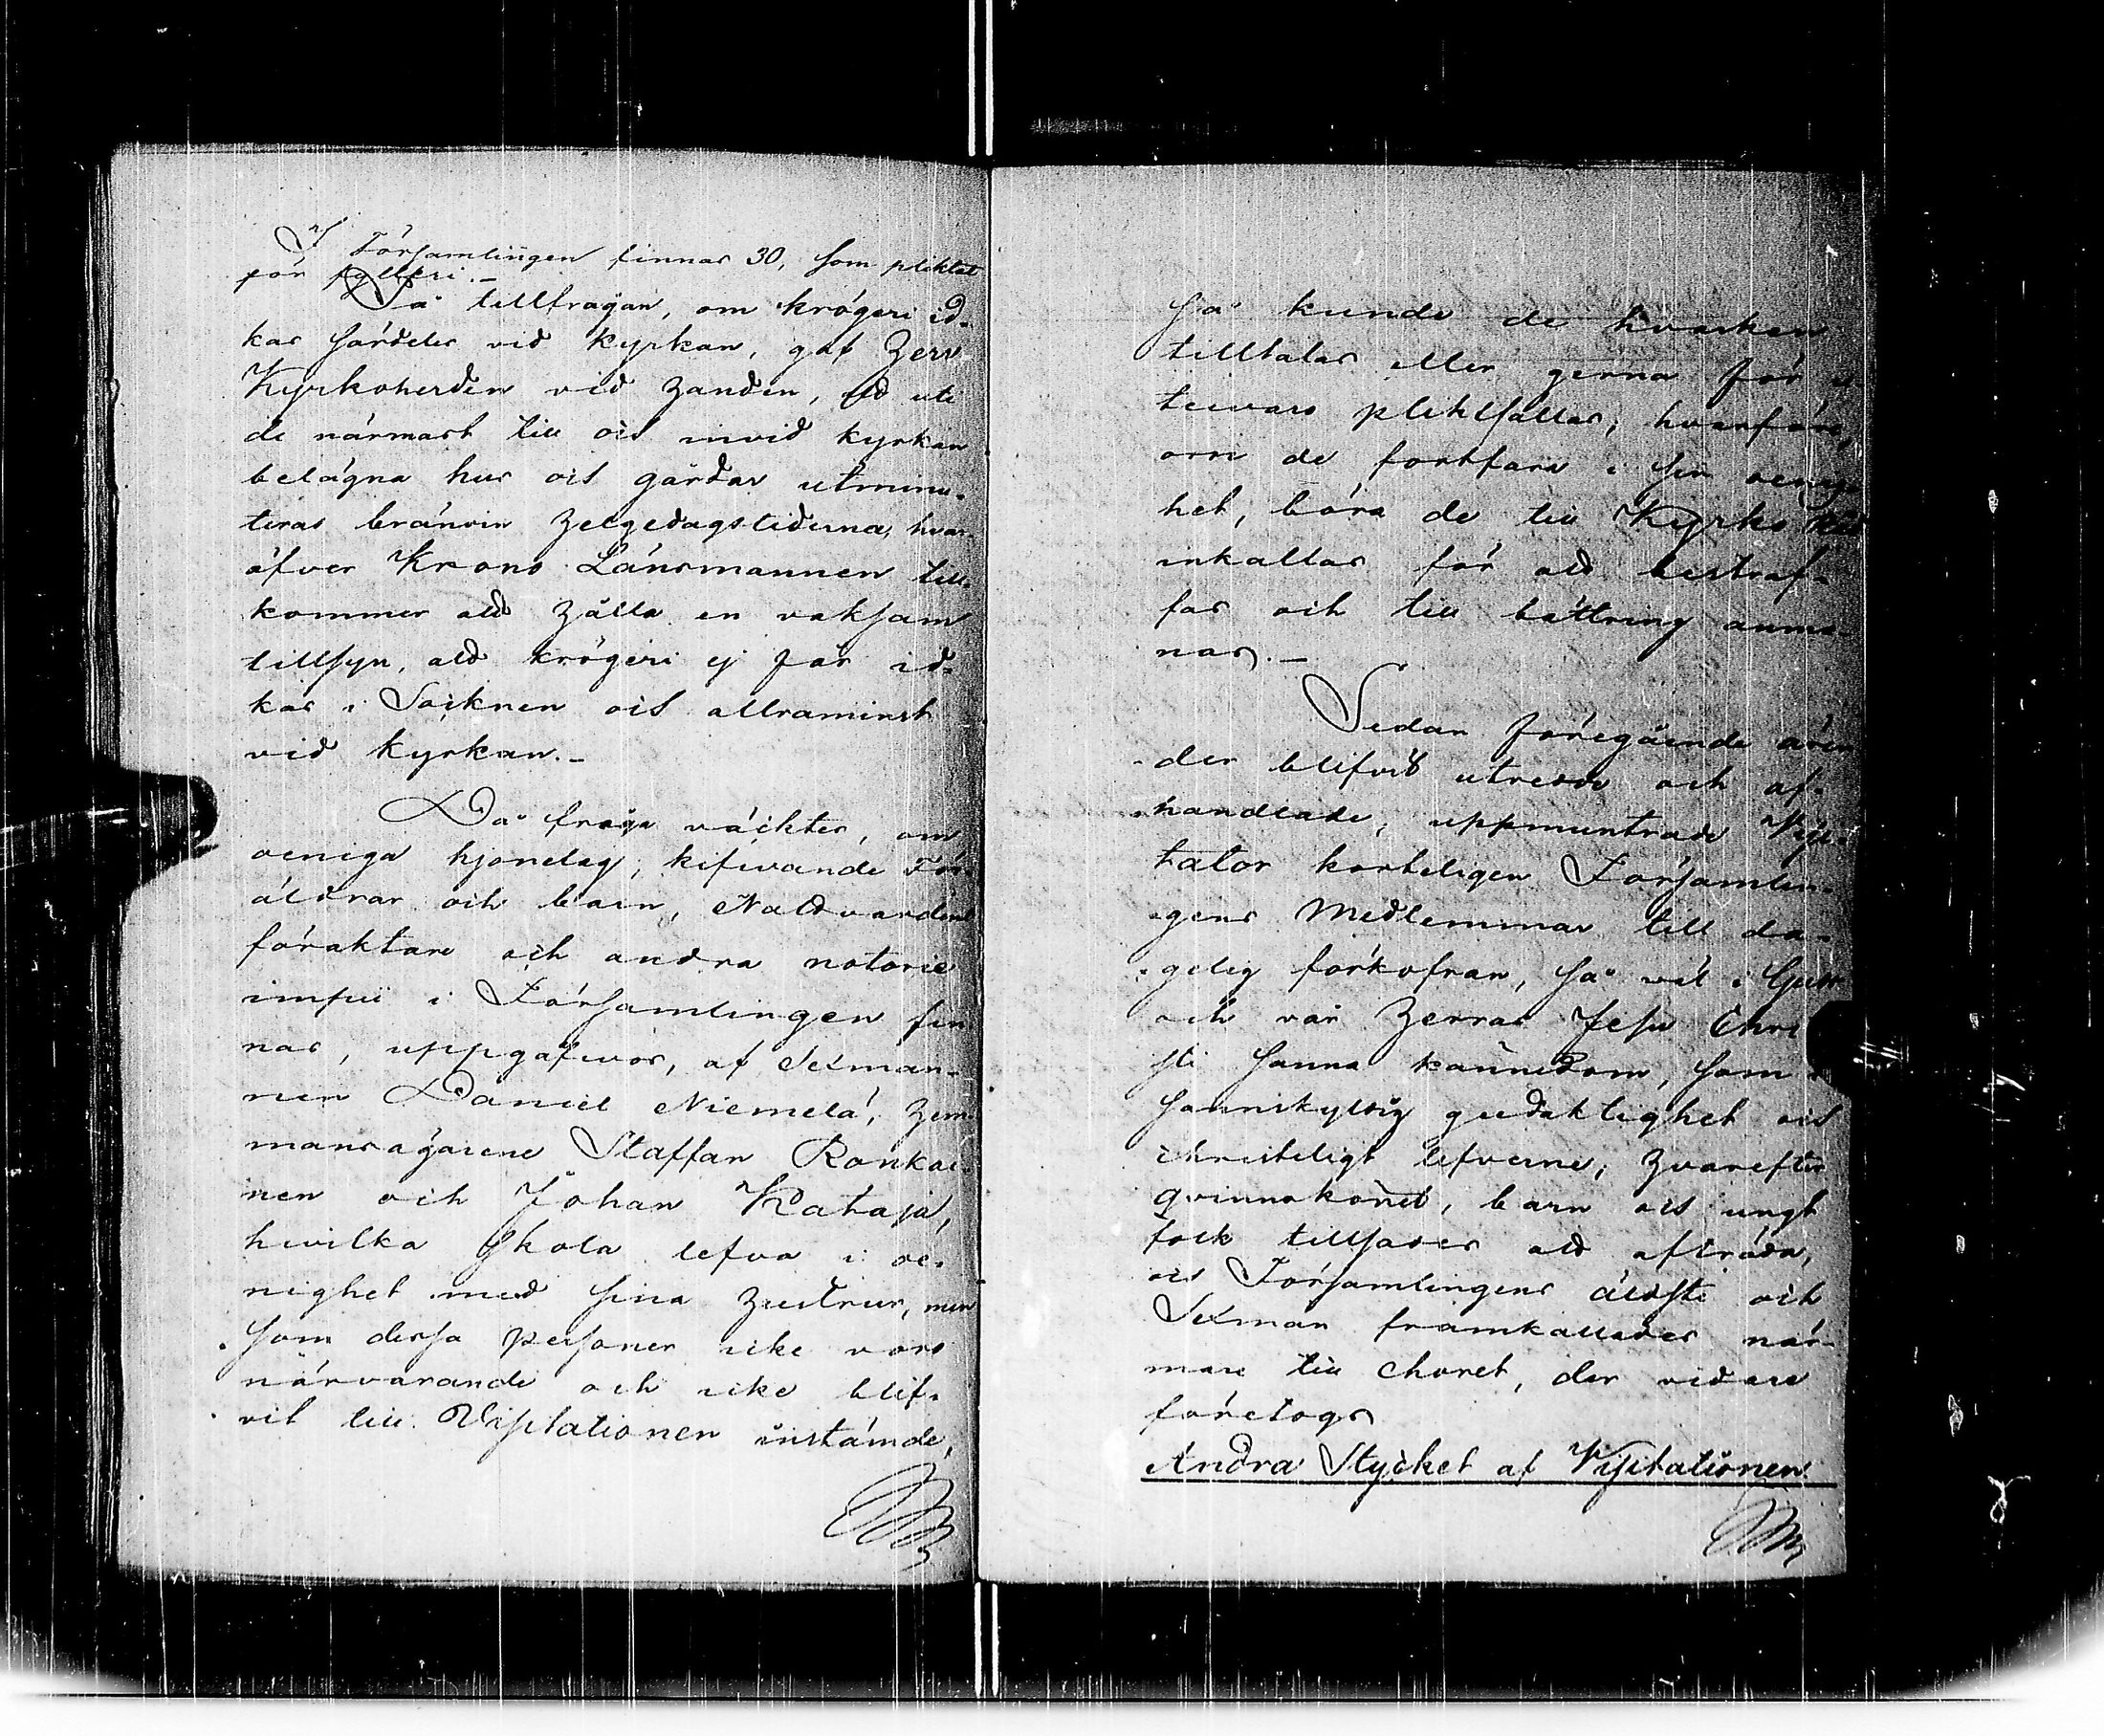 I Församlingen finnas 30, som pliktat
för fylleri. –
På tillfrågan, om krögeri id-
kas särdeles vid kyrkan, gaf Herr
Kyrkoherden vid handen, att uti
de närmast till och invid kyrkan
belägna hus och gårdar utminu-
teras bränvin helgedagstiderna, hvar-
öfver Krono Länsmannen till-
kommer att hålla en vaksam
tillsyn, att krögeri ej får id-
kas i Socknen och allraminst
vid kyrkan. –
Då fråga väcktes, om
oeniga hjonelag, kifvande För-
äldrar och barn, Nattvardens
föraktare och andra notorie
impii i Församlingen fin
nas, uppgåfvos, af Sexman-
nen Daniel Niemelä, Hem
mansägarene Staffan Ronkai-
nen och Johan Kataja,
hvilka skola lefva i oe-
nighet med sina hustrur, men
som dessa personer icke voro
närvarande och icke blif-
vit till Visitationen instämde,
så kunde de hvarken
tilltalas eller genna för
pliktfällas; hvarföre,
om de fortfara i sin oenig-
het, böra de till Kyrko Råd
inkallas för att bestraf-
fas och till bättring anma-
nas. –
Sedan föregående ären
der blifvit utredde och af-
handlade, uppmuntrade Visi-
tator korteligen Församlin-
gens Medlemmar till da-
gelig förkofran, så väl i Guds
och vår Herras Jesu Chri
sti sanna kännedom, som i
sannskyldig gudaktighet och
christeligt lefverne; Hvarefter
qvinnokönet, barn och ungt
folk tillsades att afträda,
och Församlingens äldste och
Sexmän framkallades när-
mare till choret, der vidare
företogs
Andra Stycket af Visitationen